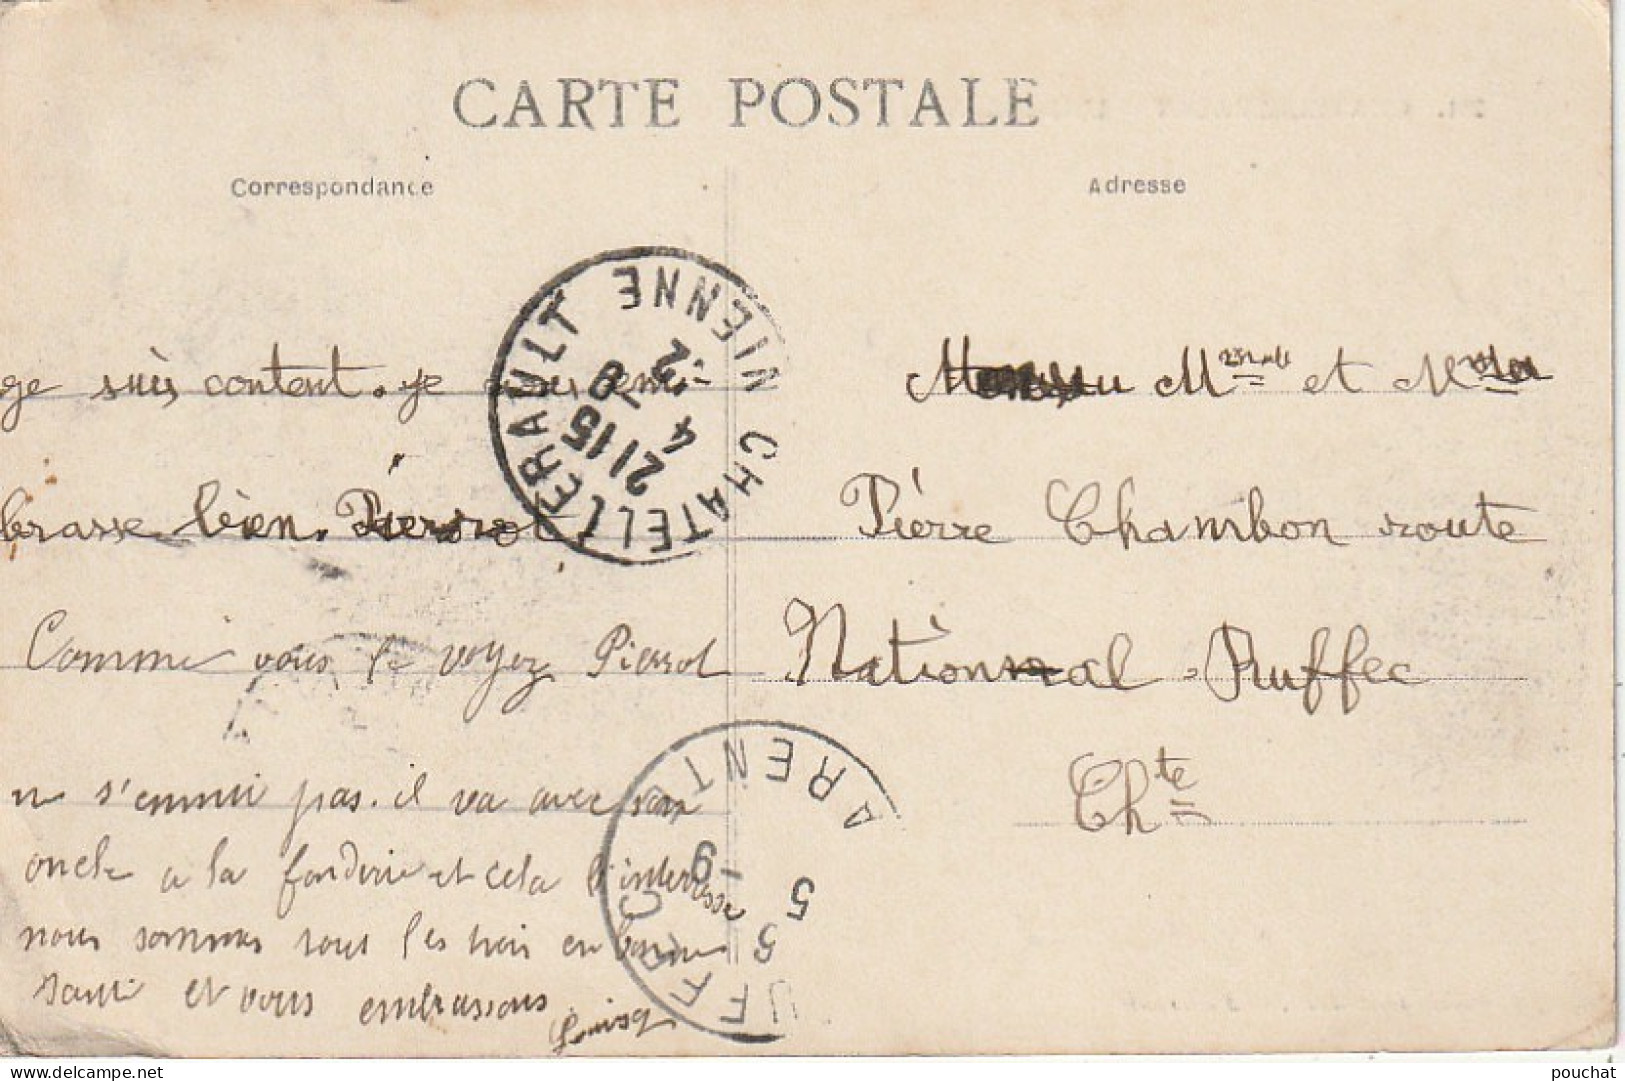 CARTE POSTALE
Correspondance
ge suis content. ge vous em
brasse bien. Pierrot
Comme vous le voyez Pierrot
ne s'ennui pas. il va avec son
oncle a la fonderie et cela l'interesse
nous sommes tous les trois en bonne
santé et vous embrassons
Louise
Adresse
Mme et M
Pierre Chambon route
National Ruffec
Chte
CHATELLERAULT VIENNE
21 15
4
RUFFEC CHARENTE
5
pouchat